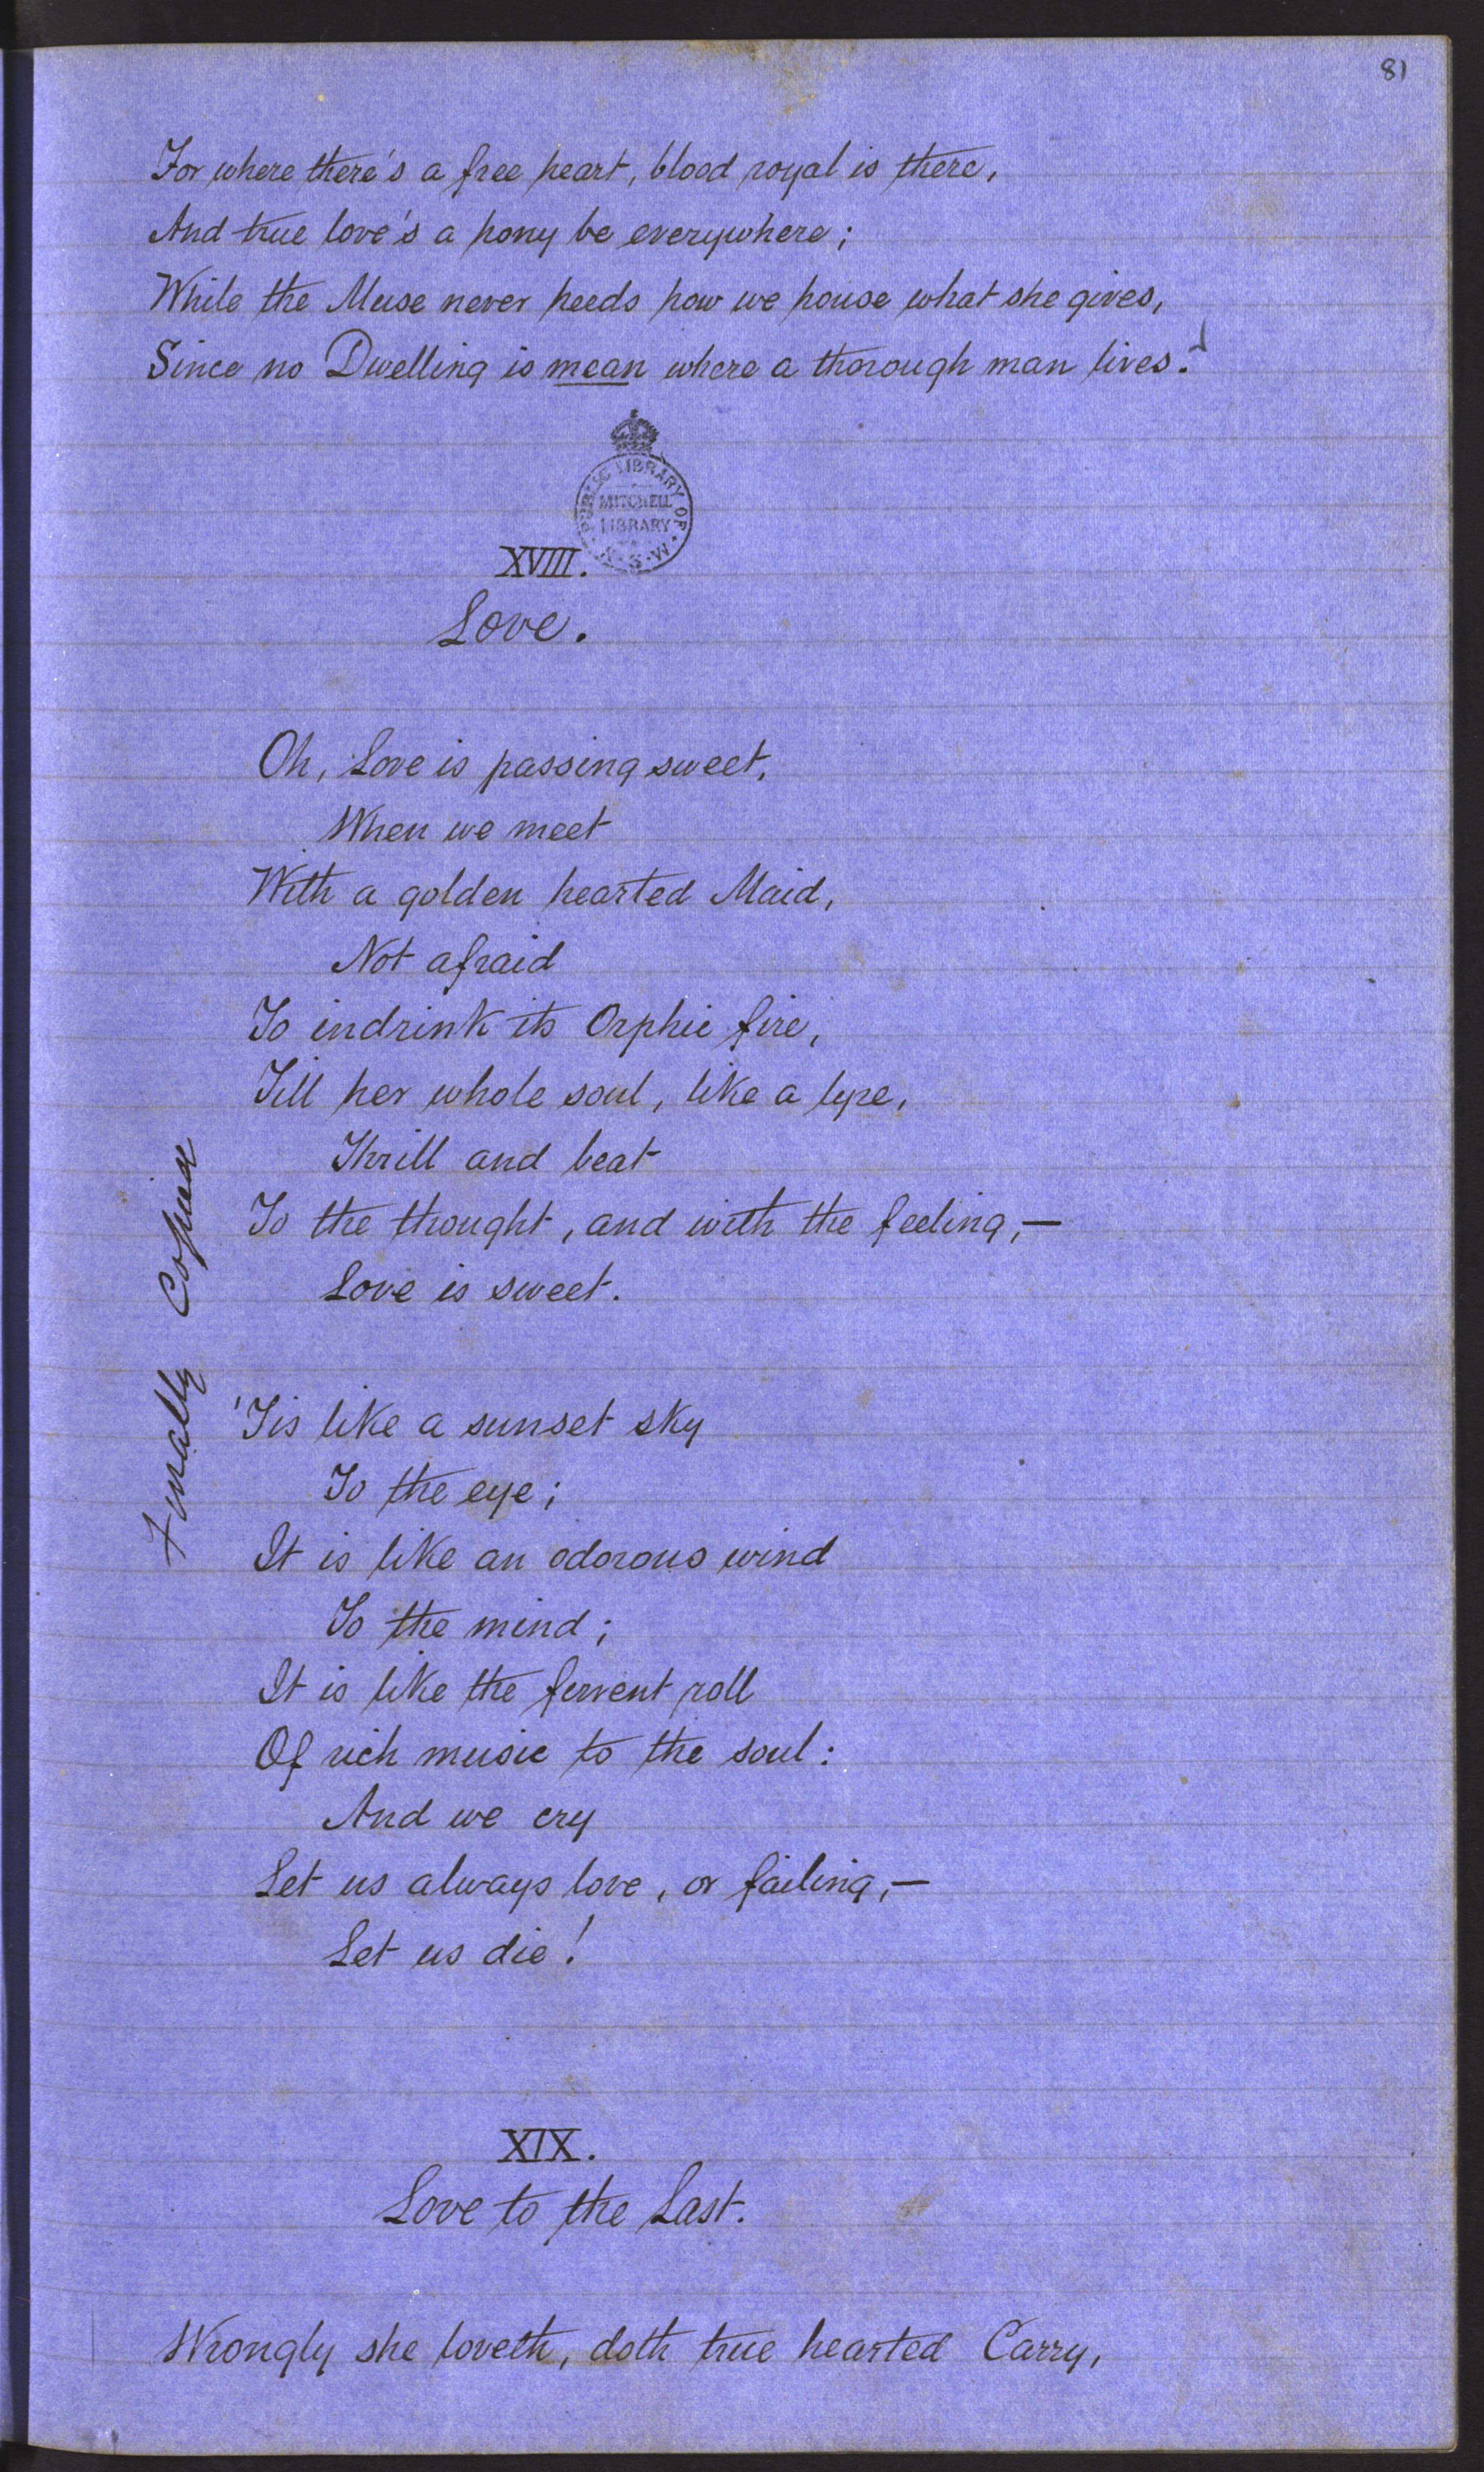 81
For where there's a free heart, blood royal is there,
And true love's a pony be everywhere;
While the Muse never heeds how we house what she gives,
Since no Dwelling is mean where a thorough man lives.
PUBLIC LIBRARY OF N.S.W.
MITCHELL
LIBRARY
XVIII.
Love.
Oh, Love is passing sweet,
When we meet
With a golden hearted Maid,
Not afraid
To indrink its Orphic fire,
Till her whole soul, like a lyre,
Thrill and beat
To the thought, and with the feeling,—
Love is sweet.
Finally Copied
'Tis like a sunset sky
To the eye;
It is like an odorous wind
To the mind;
It is like the fervent roll
Of rich music to the soul:
And we cry
Let us always love, or failing,—
Let us die!
XIX.
Love to the Last.
Wrongly she loveth, doth true hearted Carry,